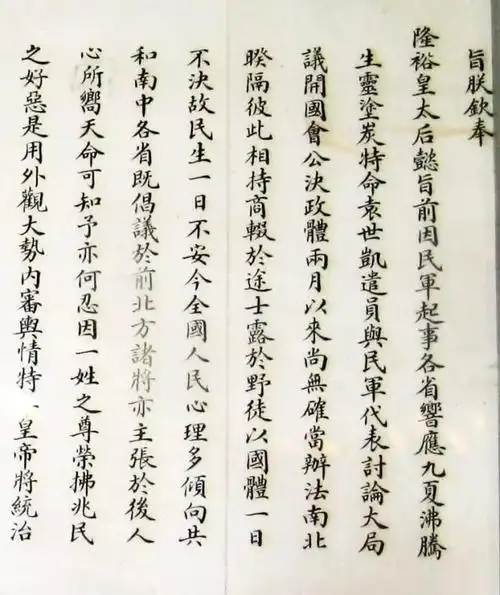 旨朕欽奉
隆裕皇太后懿旨前因民軍起事各省響應九夏沸騰
生靈塗炭特命袁世凱遣員與民軍代表討論大局
議開國會公決政體兩月以來尚無確當辦法南北
暌隔彼此相持商輟於途士露於野徒以國體一日
不決故民生一日不安今全國人民心理多傾向共
和南中各省既倡議於前北方諸將亦主張於後人
心所嚮天命可知予亦何忍因一姓之尊榮拂兆民
之好惡是用外觀大勢內審輿情特 皇帝將統治